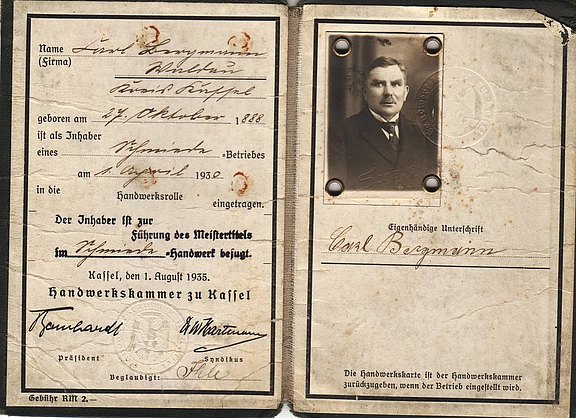 Name Carl Bergmann
(Firma) Waldau
Kreis Kassel
geboren am 27. Oktober 1888
ist als Inhaber
eines Schmiede-Betriebes
am 1. April 1930
in die Handwerksrolle
eingetragen.
Der Inhaber ist zur
Führung des Meistertitels
im Schmiede-Handwerk befugt.
Kassel, den 1. August 1935.
Handwerkskammer zu Kassel
Bernhardt Hartmann
Präsident Syndikus
Beglaubigt:
Gebühr RM 2.—
Eigenhändige Unterschrift
Carl Bergmann
Die Handwerkskarte ist der Handwerkskammer
zurückzugeben, wenn der Betrieb eingestellt wird.